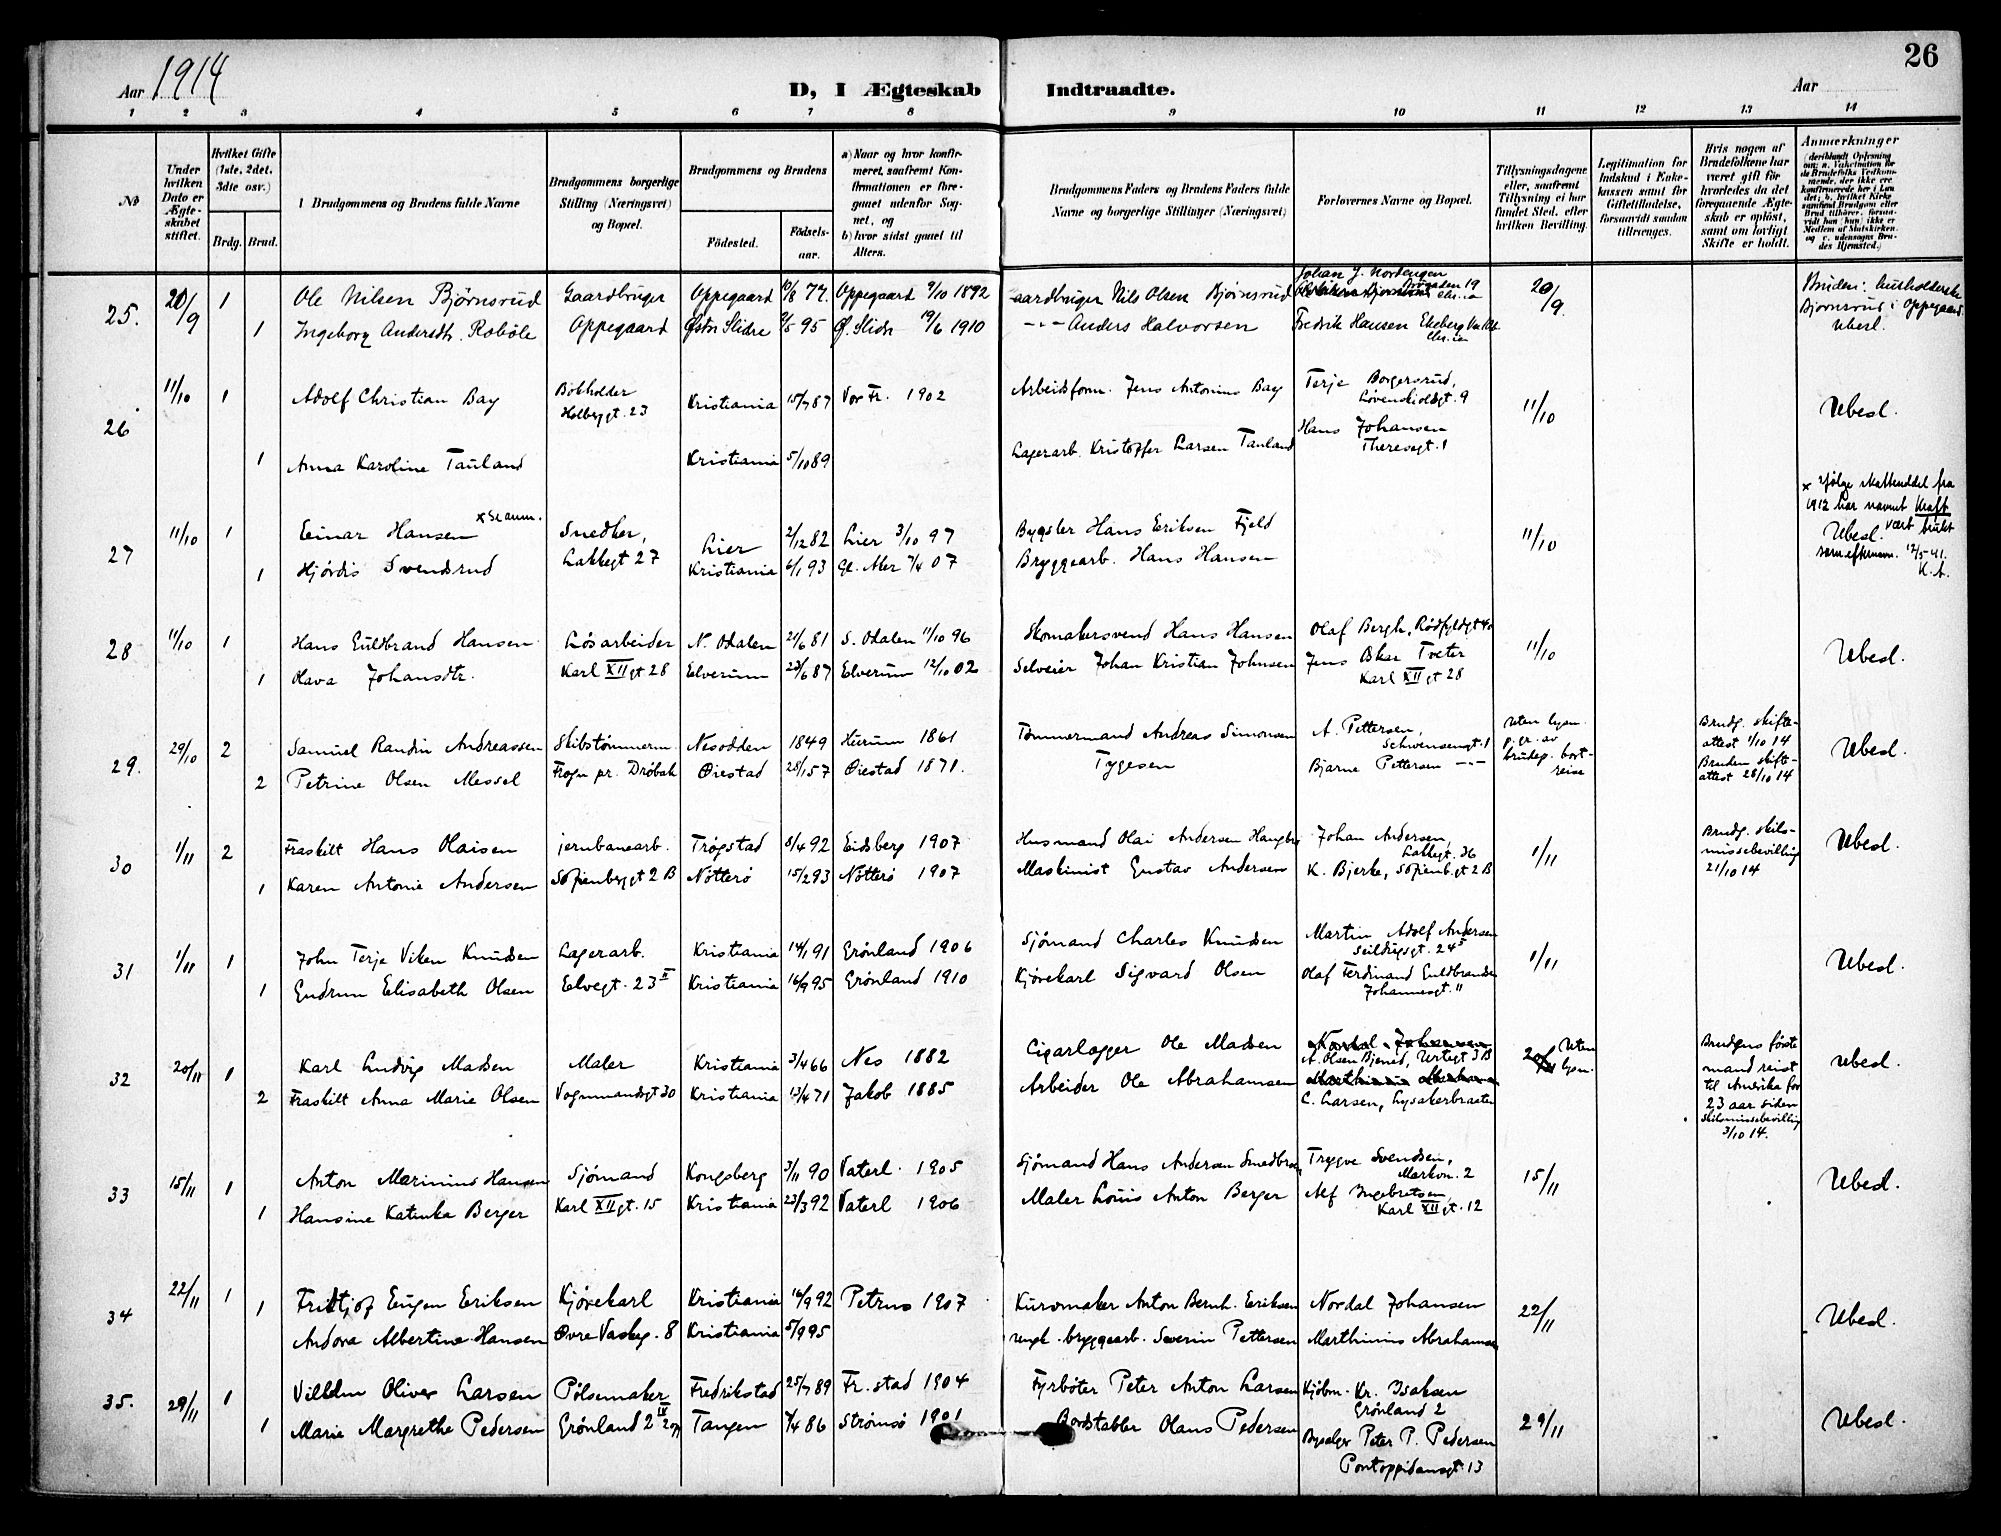 26
Aar 1914
D, I Ægteskab Indtraadte.
Aar
1 2 3 4 5 6 7 8 9 10 11 12 13 14
№
Under hvilken Dato er Ægteskabet stiftet.
Hvilket Gifte (1ste, 2det, 3die osv.)
Brdg. Brud.
Brudgommens og Brudens fulde Navne
Brudgommens borgerlige Stilling (Næringsvei) og Bopæl.
Brudgommens og Brudens
Födested. Födsels-aar.
a) Naar og hvor konfirmeret, saafremt Konfirmationen er foregaaet udenfor Sognet, og
b) hvor sidst gaaet til Alters.
Brudgommens Faders og Brudens Faders fulde Navne og borgerlige Stillinger (Næringsvei)
Forlovernes Navne og Bopæl.
Tillysningsdagene eller, saafremt Tillysning ei har fundet Sted, efter hvilken Bevilling.
Legitimation for Indskud i Enkekassen samt for Giftetilladelse, forsaavidt saadan tiltrænges.
Hvis nogen af Brudefolkene har været gift før hvorledes da det foregaaende Ægteskab er opløst, samt om lovligt Skifte er holdt.
Anmærkninger
25. 20/9 1 Ole Nilsen Bjørnsrud Gaardbruger Oppegaard 10/8 77. Oppegaard 9/10 1892 Gaardbruger Nils Olsen Bjørnsrud Johan J. Nordengen 20/9
1 Ingeborg Andersdtr. Robøle Oppegaard Østre Slidre 95 Ø. Slidr 19/6 1910 -"- Anders Halvorsen Fredrik Hansen Ekeberg
Bjørnsrud i Oppegaard Ubesl.
26 11/10 1 Adolf Christian Bay Bokholder Holbergt. 23 Kristiania 15/7 87 Vor Fr. 1902 Arbeidsform. Jens Antonius Bay Terje Borgersrud, Løvenskioldsgt. 9 11/10 Ubesl.
1 Anna Karoline Tauland Kristiania 5/10 89 Lagerarb. Kristoffer Larsen Tauland Hans Johansen Theresegt. 1
27 11/10 1 Einar Hansen x se anm. Snedker, Lakkegt 27 Lier 2/12 82 Lier 3/10 97 Bygsler Hans Eriksen Fjeld 11/10
1 Hjørdis Svendsrud Kristiania 6/1 93 Gl. Aker 7/4 07 Bryggearb. Hans Hansen
x Ifølge skatteuddel fra 1912 har navnet Kraft vært brukt som efternavn. 12/5-41. K.A.
Ubesl.
28 11/10 1 Hans Guldbrand Hansen Løsarbeider N. Odalen 21/6 81 S. Odalen 11/10 96 Skomakersvend Hans Hansen Olaf Bergh, Rødfyldgt 40 11/10 Ubesl.
1 Olava Johansdtr. Karl XII gt 28 Elverum 23/6 87 Elverum 12/10 02 Selveier Johan Kristian Johnsen Jens Tveter Karl XII gt 28
29. 29/10 2 Samuel Randin Andreassen Skibstømmerm. Nesodden 1849 Hurum 1861 Tømmermand Andreas Simonsen A. Pettersen, Schwensengt. 1 Uten lysn. p. gr. av brudeg. bortreise
2 Petrine Olsen Messel Frogn pr. Drøbak Øiestad 28/1 57 Øiestad 1871. Tygesen Bjarne Pettersen -"-
Brudg. skifteattest 1/10 14 Bruden skifteattest 28/10 14 Ubesl.
30 1/11 2 Fraskilt Hans Olaisen jernbanearb. Trøgstad 8/4 92 Eidsberg 1907 Husmand Olai Andersen Johan Andersen, Lakkegt. 36 1/11 Brudg. skilsmissebevilling 21/10 14 Ubesl.
1 Karen Antonie Andersen Sofienbergt 2 B Nøtterø 15/2 93 Nøtterø 1907 Maskinist Gustav Andersen K. Bjerke, Sofienb.gt 2 B
31 1/11 1 John Terje Viken Knudsen Lagerarb. Kristiania 14/1 91 Grønland 1906 Sjømand Charles Knudsen Martin Adolf Andersen Seildugsgt. 24 1/11 Ubesl.
1 Gudrun Elisabeth Olsen Elvegt. 23 II Kristiania 16/9 95 Grønland 1910 Kjørekarl Sigvard Olsen Olaf Ferdinand Guldbrandsen Johannesgt. 11
32 20/11 1 Karl Ludvig Madsen Maler Kristiania 3/4 66 Nes 1882 Cigarlægger Ole Madsen Nordal Johansen A. Olsen Bjened, Urtegt 3 B Uten lysn.
2 Fraskilt Anna Marie Olsen Vognmandsgt 30 Kristiania 13/4 71 Jakob 1885 Arbeider Ole Abrahamsen Marthinius Abrahamsen C. Larsen, Lysakerbraaten
Brudens første mand reist til Amerika for 23 aar siden skilsmissebevilling 3/10 14. Ubesl.
33 15/11 1 Anton Marinius Hansen Sjømand Kongsberg 3/11 90 Vaterl. 1905 Sjømand Hans Andersen Trygve Svendsen, Markvn. 2 15/11 Ubesl.
1 Hansine Katinka Berger Karl XII gt. 15 Kristiania 23/3 92 Vaterl 1906 Maler Louis Anton Berger Alf Ingebretsen, Karl XII gt. 12
34 22/11 1 Fridtjof Eugen Eriksen Kjørekarl Kristiania 14/9 92 Petrus 1907 Kurvmaker Anton Bernh. Eriksen Nordal Johansen 22/11 Ubesl.
1 Andora Albertine Hansen Øvre Vaskeg. 8 Kristiania 5/9 95 bryggearb. Severin Pettersen Marthinius Abrahamsen
35. 29/11 1 Vilhelm Oliver Larsen Pølsemaker Fredrikstad 25/7 89 Fr.stad 1904 Fyrbøter Peter Anton Larsen Kjøbm. Kr. Isaksen Grønland 2 29/11 Ubesl.
1 Marie Margrethe Pedersen Grønland 2 IV Tangen 7/4 86 Strømsø 1901 Bordstabler Olaus Pedersen Peter P. Pedersen Pontoppidansgt. 13